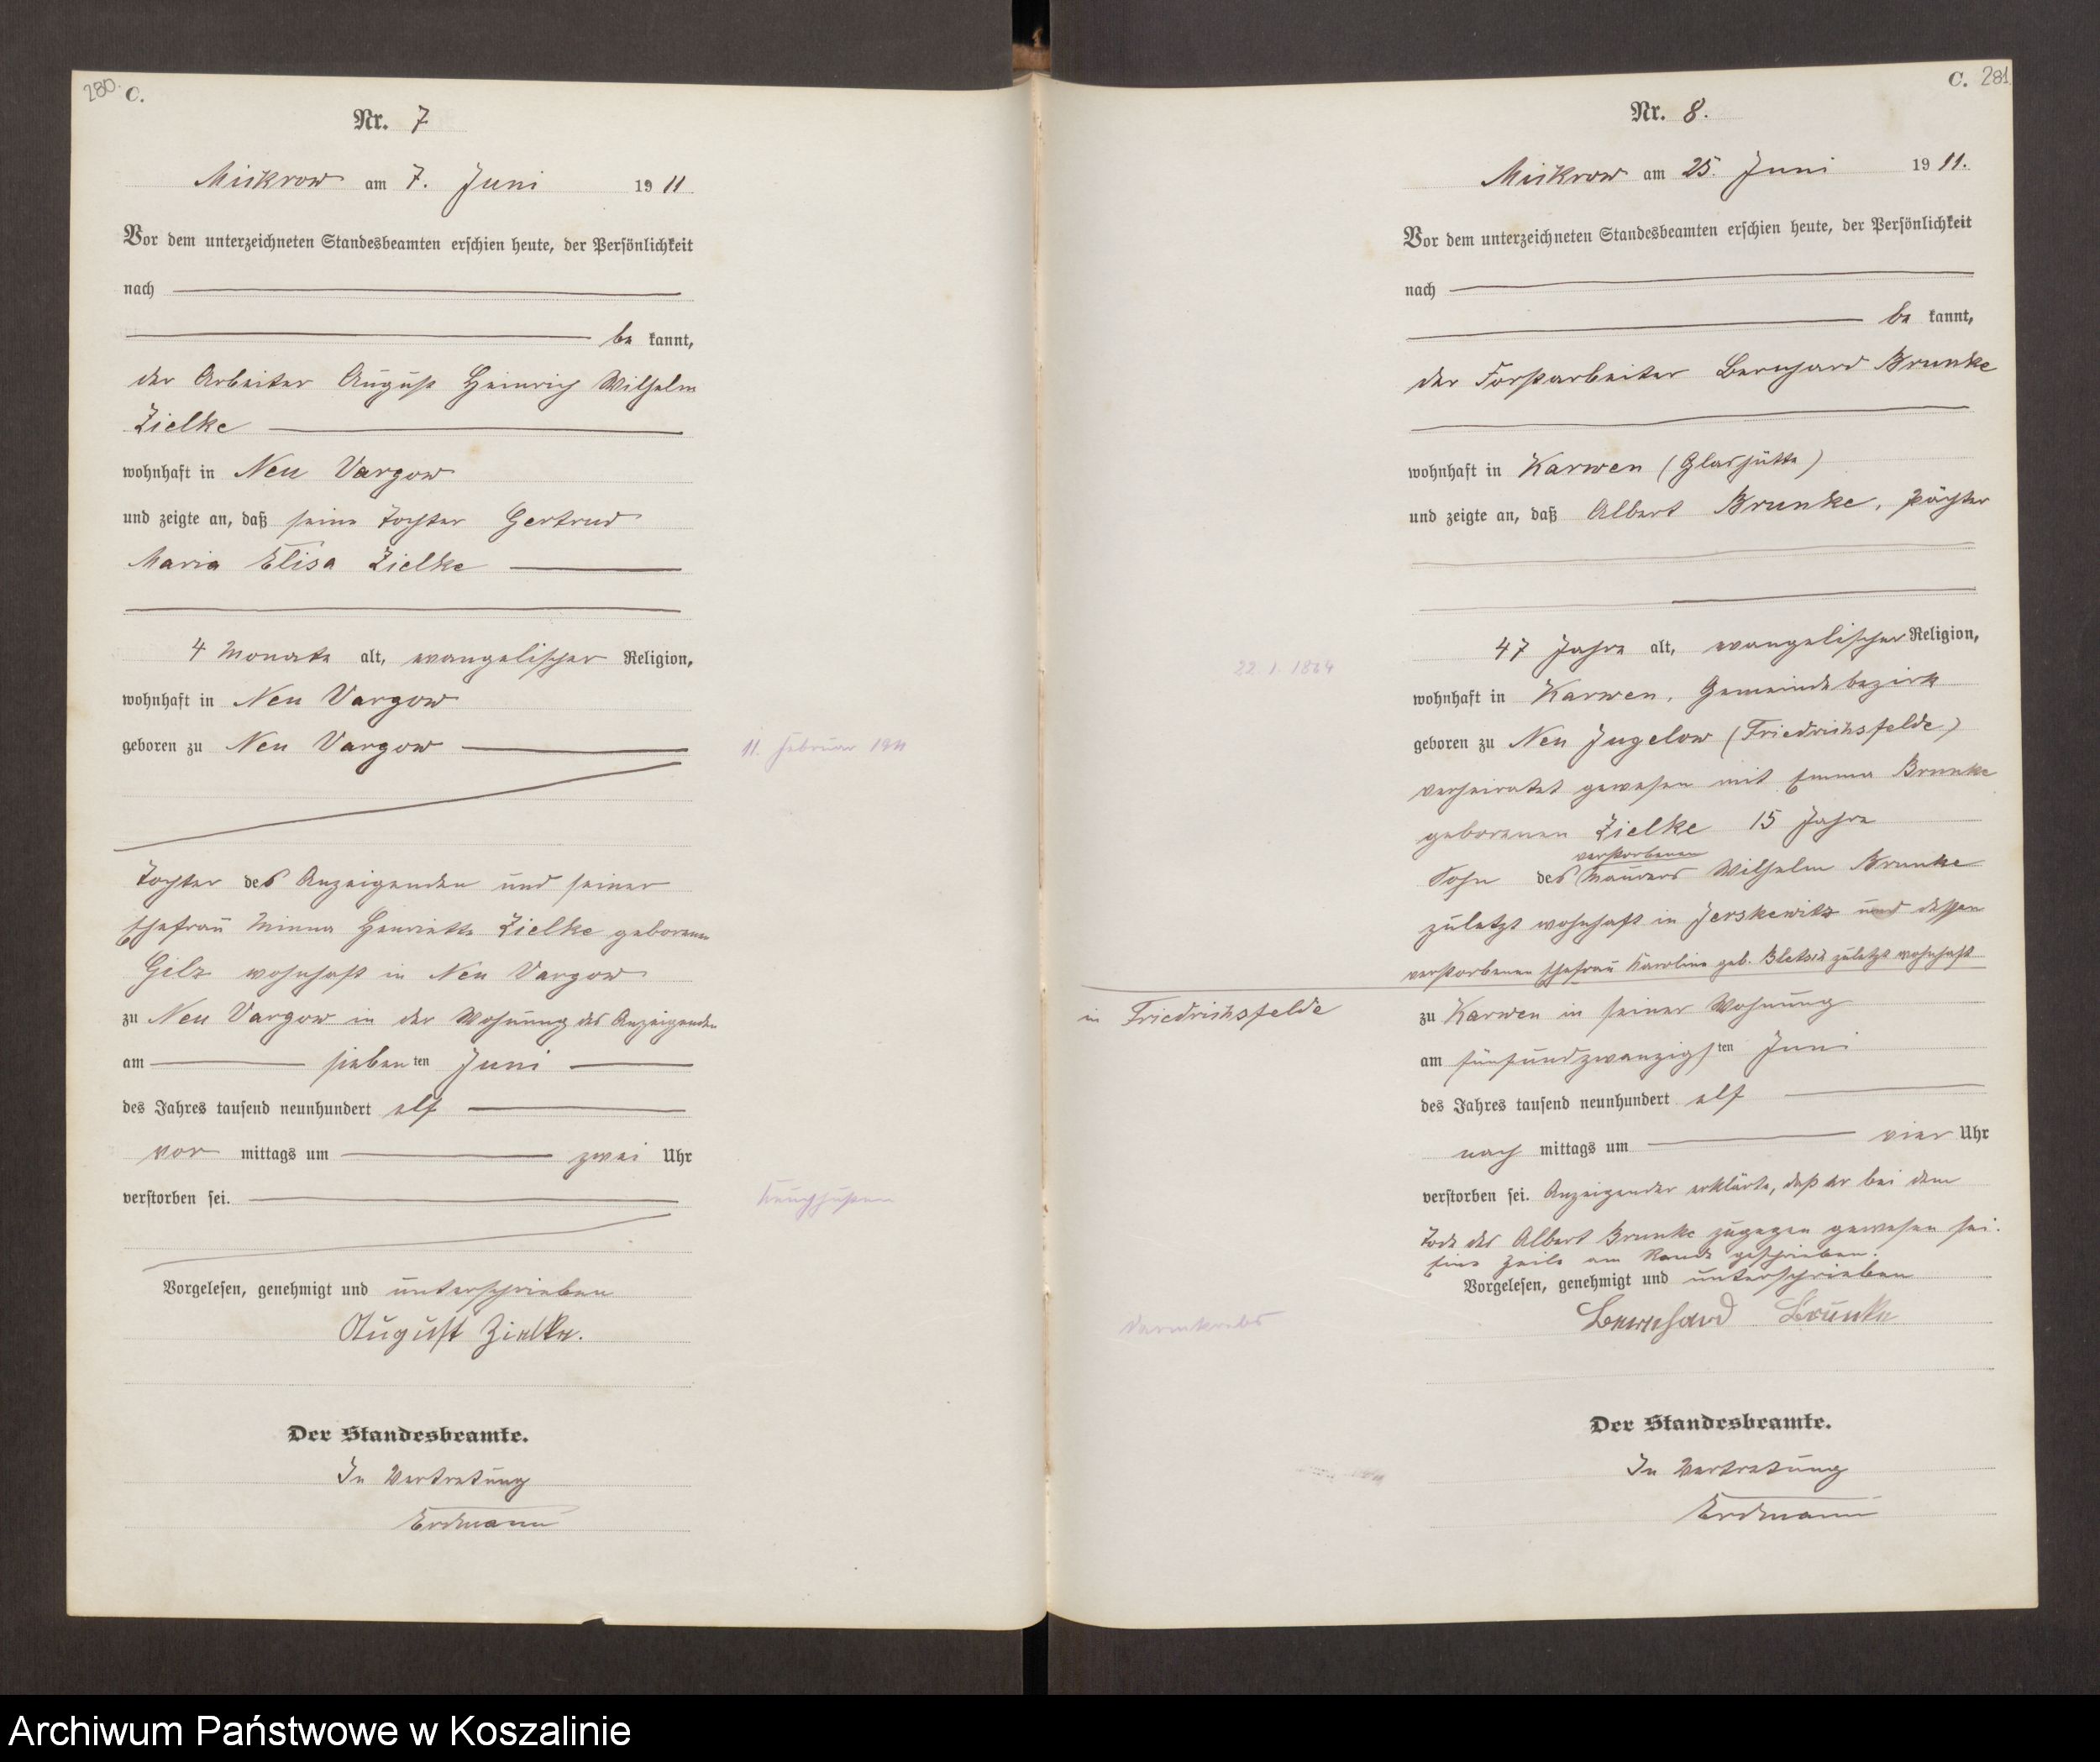 280.
C.
Nr. 7
Mickrow am 7. Juni 1911
Vor dem unterzeichneten Standesbeamten erschien heute, der Persönlichkeit
nach
be kannt,
der Arbeiter August Heinrich Wilhelm
Zielke
wohnhaft in Neu Vargow
und zeigte an, daß seine Tochter Gertrud
Maria Elisa Zielke
4 Monate alt, evangelischer Religion,
wohnhaft in Neu Vargow
geboren zu Neu Vargow
11. Februar 1911
Tochter des Anzeigenden und seiner
Ehefrau Minna Henriette Zielke geborenen
Gilz wohnhaft in Neu Vargow
zu Neu Vargow in der Wohnung des Anzeigenden
am siebenten Juni
des Jahres tausend neunhundert elf
vor mittags um zwei Uhr
verstorben sei.
Keuchhusten
Vorgelesen, genehmigt und unterschrieben
August Zielke.
Der Standesbeamte.
In Vertretung
Erdmann
C. 281
Nr. 8.
Mickrow am 25. Juni 1911.
Vor dem unterzeichneten Standesbeamten erschien heute, der Persönlichkeit
nach
be kannt,
der Forstarbeiter Bernhard Brunke
wohnhaft in Karwen (Glashütte)
und zeigte an, daß Albert Brunke, Pächter
47 Jahre alt, evangelischer Religion,
22. 1. 1864
wohnhaft in Karwen, Gemeindebezirk
geboren zu Neu Jugelow (Friedrichsfelde)
verheiratet gewesen mit Emma Brunke
geborenen Zielke 15 Jahre
verstorbenen
Sohn des Maurers Wilhelm Brunke
zuletzt wohnhaft in Jerskewitz und dessen
verstorbenen Ehefrau Karoline geb. zuletzt wohnhaft
in Friedrichsfelde
zu Karwen in seiner Wohnung
am fünfundzwanzigsten Juni
des Jahres tausend neunhundert elf
nach mittags um vier Uhr
verstorben sei. Anzeigender erklärte, daß er bei dem
Tode des Albert Brunke zugegen gewesen sei.
Eine Zeile am Rande geschrieben.
Vorgelesen, genehmigt und unterschrieben
Bernhard Brunke
Darmkrebs
Der Standesbeamte.
In Vertretung
Erdmann
Archiwum Państwowe w Koszalinie